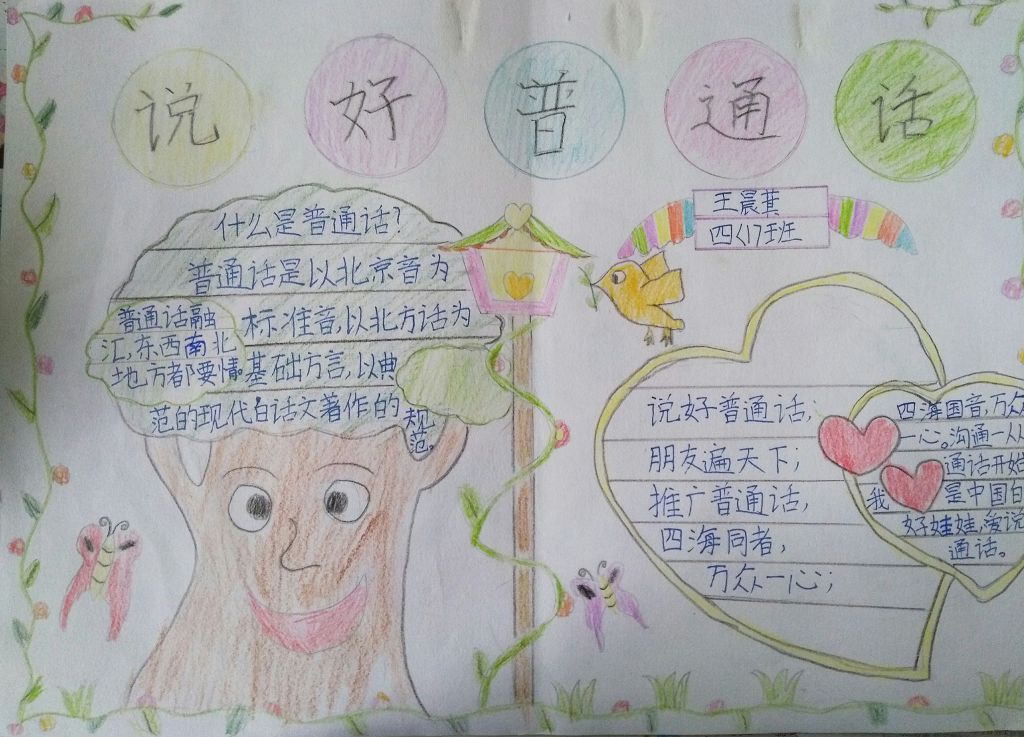 说好普通话
王晨萁
四<1>班
什么是普通话?
普通话是以北京音为
标准音,以北方话为
基础方言,以典
范的现代白话文著作的
规
范。
普通话融
汇,东西南北
地方都要情。
说好普通话;
朋友遍天下;
推广普通话,
四海同者,
万众一心;
四海国音,万众
一心。沟通一从
通话开始
我 是中国
好娃娃,爱说
通话。